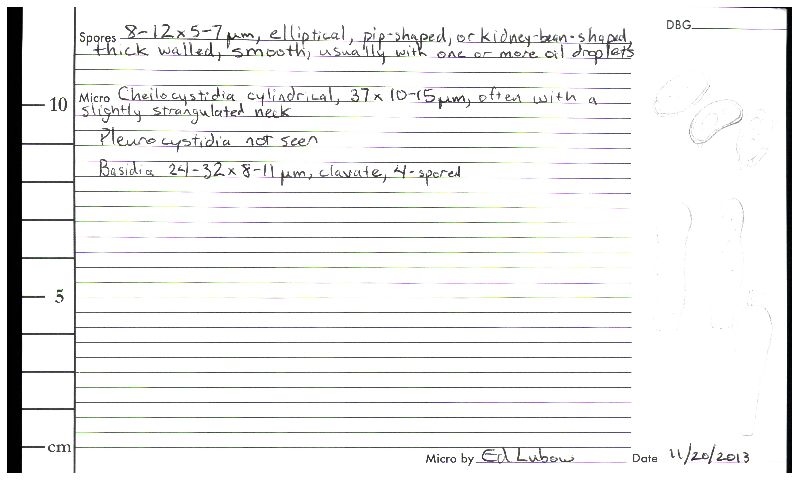 DBG
Spores 8-12 x 5-7 µm, elliptical, pip-shaped, or kidney-bean-shaped,
thick walled, smooth, usually with one or more oil droplets
10
Micro Cheilocystidia cylindrical, 37 x 10-15 µm, often with a
slightly strangulated neck
Pleurocystidia not seen
Basidia 24-32 x 8-11 µm, clavate, 4-spored
5
cm
Micro by Ed Lubow Date 11/20/2013